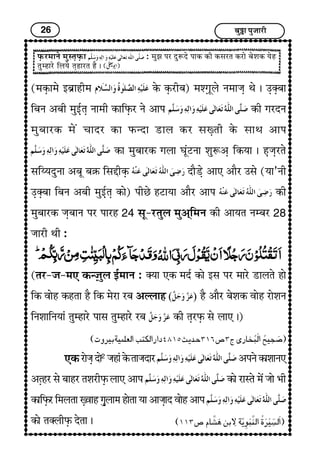 26 बुड्ढा पुजारी
फ़रमाने मुस्त़फ़ा صَلَّى اللهُ تَعَالٰى عَلَيْهِ وَاٰلِهٖ وَسَلَّم : मुझ पर दुरूदे पाक की कसरत करो बेशक येह
तुम्हारे लिये त़हारत है । (ابو یعلیٰ)
(मक़ामे इब्राहीम عَلَيْهِ الصَّلٰوةُ وَالسَّلَام के क़रीब) मश्ग़ूले नमाज़ थे । उ़क़्बा
बिन अबी मुई़त़ नामी काफ़िर ने आप صَلَّى اللهُ تَعَالٰى عَلَيْهِ وَاٰلِهٖ وَسَلَّم की गरदन
मुबारक में चादर का फन्दा डाल कर सख़्ती के साथ आप
صَلَّى اللهُ تَعَالٰى عَلَيْهِ وَاٰلِهٖ وَسَلَّم का मुबारक गला घूंटना शुरूअ़ किया । ह़ज़रते
सय्यिदुना अबू बक्र सिद्दीक़ رَضِىَ اللهُ تَعَالٰى عَنْهُ दौड़े आए और उसे (या'नी
उ़क़्बा बिन अबी मुई़त़ को) पीछे हटाया और आप رَضِىَ اللهُ تَعَالٰى عَنْهُ की
मुबारक ज़बान पर पारह 24 सू-रतुल मुअ्मिन की आयत नम्बर 28
जारी थी :
اَتَقْتُلُوْنَ رَجُلًا اَنْ يَّقُوْلَ رَبِّيَ اللّٰهُ وَقَدْ جَآءَكُمْ بِالْبَيِّنٰتِ مِنْ رَّبِّكُمْ
(तर-ज-मए कन्ज़ुल ईमान : क्या एक मर्द को इस पर मारे डालते हो
कि वोह कहता है कि मेरा रब अल्लाह (عَزَّ وَجَلَّ) है और बेशक वोह रोशन
निशानियां तुम्हारे पास तुम्हारे रब عَزَّ وَجَلَّ की त़रफ़ से लाए ।)
(صَحِيحُ البُخارى ج٣ص٣١٦حديث٤٨١٥دارالكتب العلمية بيروت)
एक रोज़ दो जहां के ताजदार صَلَّى اللهُ تَعَالٰى عَلَيْهِ وَاٰلِهٖ وَسَلَّم अपने काशानए
अत़्हर से बाहर तशरीफ़ लाए आप صَلَّى اللهُ تَعَالٰى عَلَيْهِ وَاٰلِهٖ وَسَلَّم को रास्ते में जो भी
काफ़िर मिलता ख़्वाह ग़ुलाम होता या आज़ाद वोह आप صَلَّى اللهُ تَعَالٰى عَلَيْهِ وَاٰلِهٖ وَسَلَّم
को तक्लीफ़ देता । (اَلسِّيْرَةُ النَّبَوِيَّة لابنِ هَشّام ص١١٣)